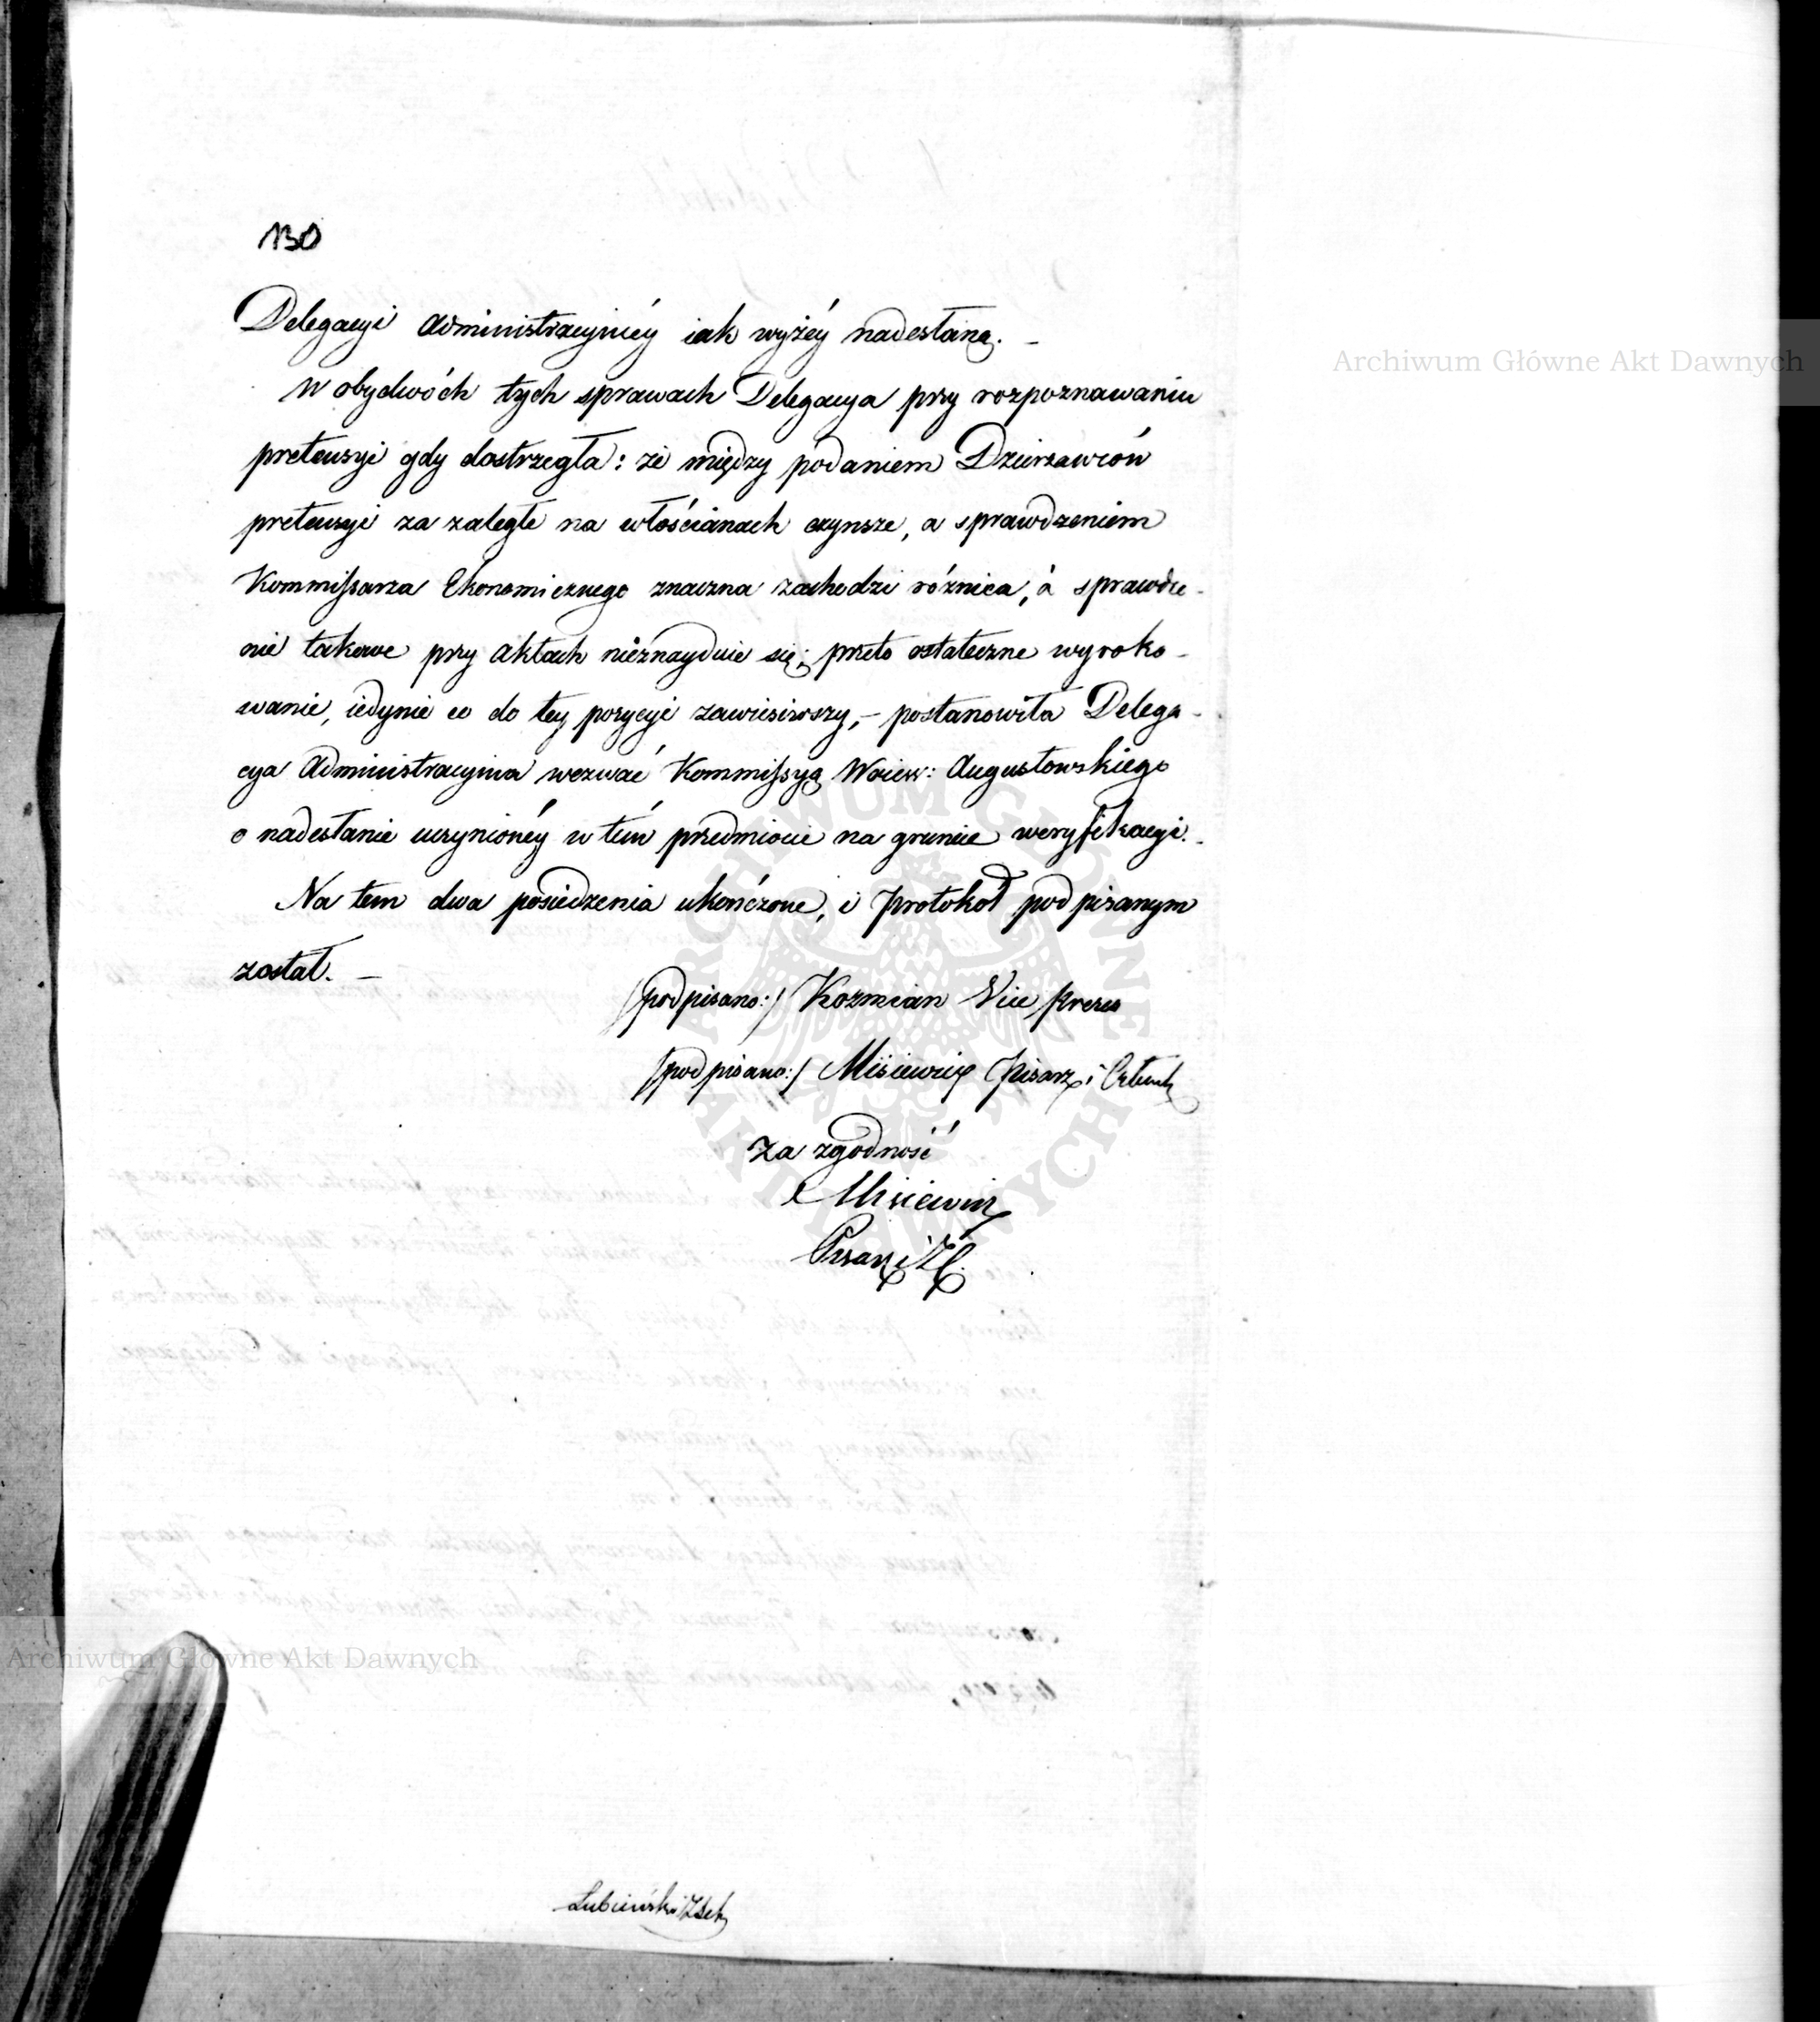 130
Delegacyi Administracyinéy iak wyżéy nadesłaną. _
W obydwóch tych sprawach Delegacya przy rozpoznawaniu
pretensyi gdy dostrzegła: że między podaniem Dzierzawców
pretensyi za zaległe na włościanach czynsze, a sprawdzeniem
Kommissarza Ekonomicznego znaczna zachodzi różnica, a sprawdze-
nie takowe przy Aktach nieznayduie się; przeto ostateczne wyroko-
wanie, iedynie co do tey pozycyi zawiesiwszy, - postanowiła Delega-
cya Administracyina wezwać Kommissyą Woiew: Augustowskiego
o nadesłanie uczynionéy w tém przedmiocie na gruncie weryfikacyi. -
Na tem dwa posiedzenia ukończone, i Protokół podpisanym
został. _
/podpisano:/ Kozmian Vice Prezes
/podpisano:/ Misiewicz Pisarz i Członek
Za zgodność
Misiewicz
Pisarz i
Lubieński
Archiwum Główne Akt Dawnych
Archiwum Główne Akt Dawnych
ARCHIWUM GŁÓWNE AKT DAWNYCH